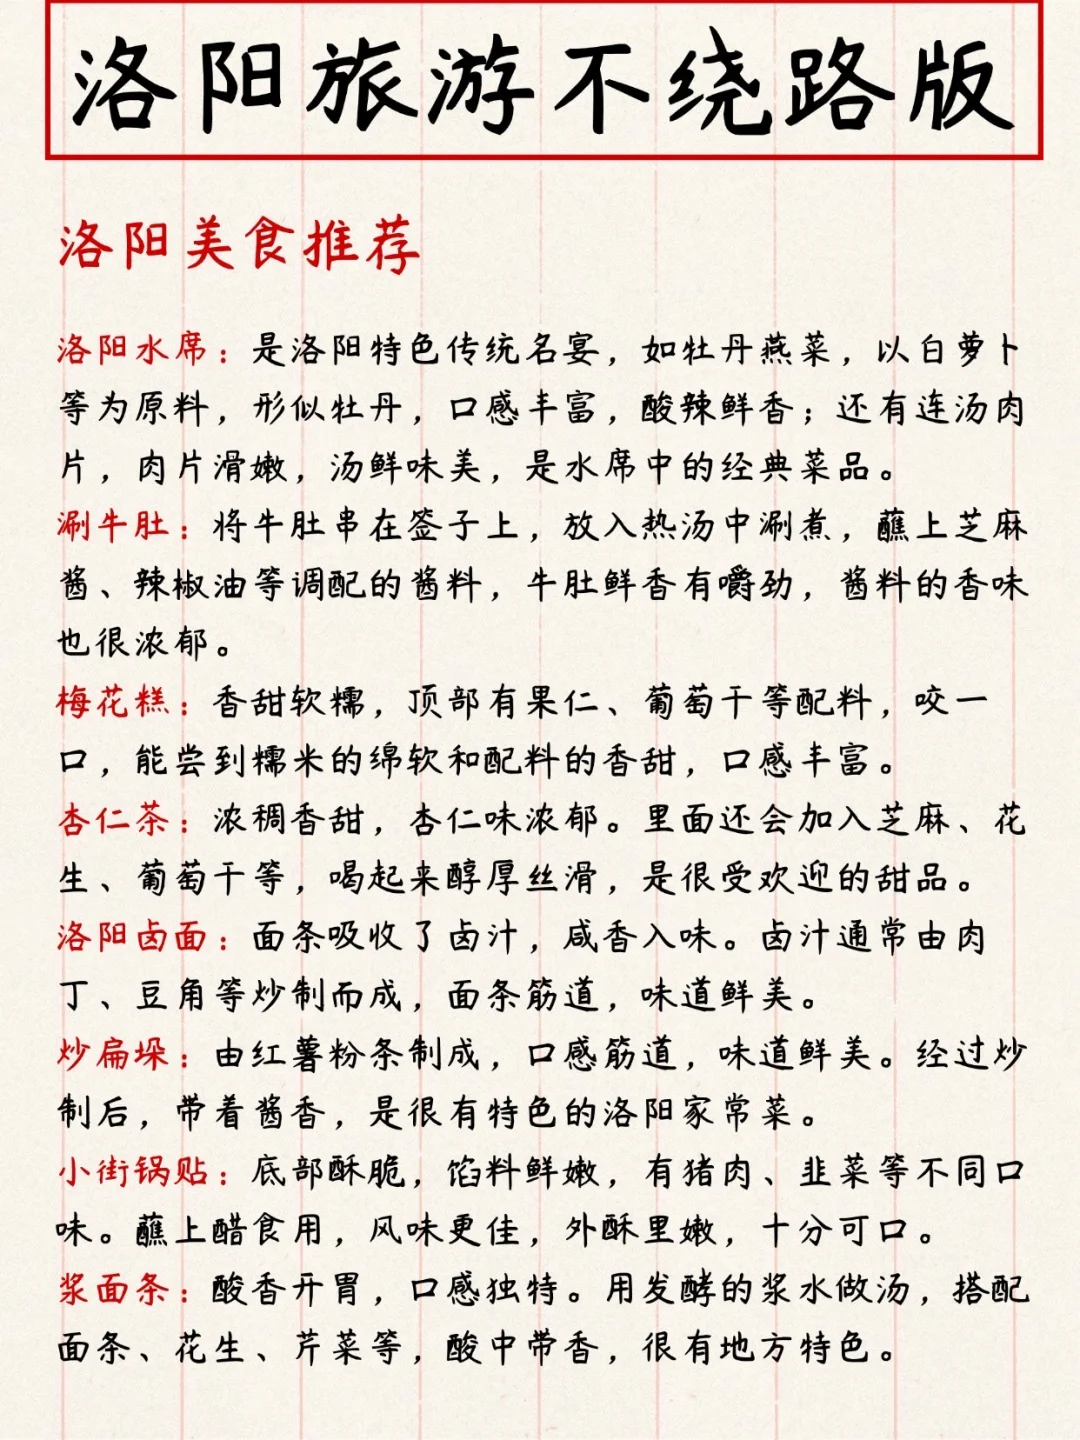 洛阳旅游不绕路版
洛阳美食推荐
洛阳水席：是洛阳特色传统名宴，如牡丹燕菜，以白萝卜
等为原料，形似牡丹，口感丰富，酸辣鲜香；还有连汤肉
片，肉片滑嫩，汤鲜味美，是水席中的经典菜品。
涮牛肚：将牛肚串在签子上，放入热汤中涮煮，蘸上芝麻
酱、辣椒油等调配的酱料，牛肚鲜香有嚼劲，酱料的香味
也很浓郁。
梅花糕：香甜软糯，顶部有果仁、葡萄干等配料，咬一
口，能尝到糯米的绵软和配料的香甜，口感丰富。
杏仁茶：浓稠香甜，杏仁味浓郁。里面还会加入芝麻、花
生、葡萄干等，喝起来醇厚丝滑，是很受欢迎的甜品。
洛阳卤面：面条吸收了卤汁，咸香入味。卤汁通常由肉
丁、豆角等炒制而成，面条筋道，味道鲜美。
炒扁垛：由红薯粉条制成，口感筋道，味道鲜美。经过炒
制后，带着酱香，是很有特色的洛阳家常菜。
小街锅贴：底部酥脆，馅料鲜嫩，有猪肉、韭菜等不同口
味。蘸上醋食用，风味更佳，外酥里嫩，十分可口。
浆面条：酸香开胃，口感独特。用发酵的浆水做汤，搭配
面条、花生、芹菜等，酸中带香，很有地方特色。